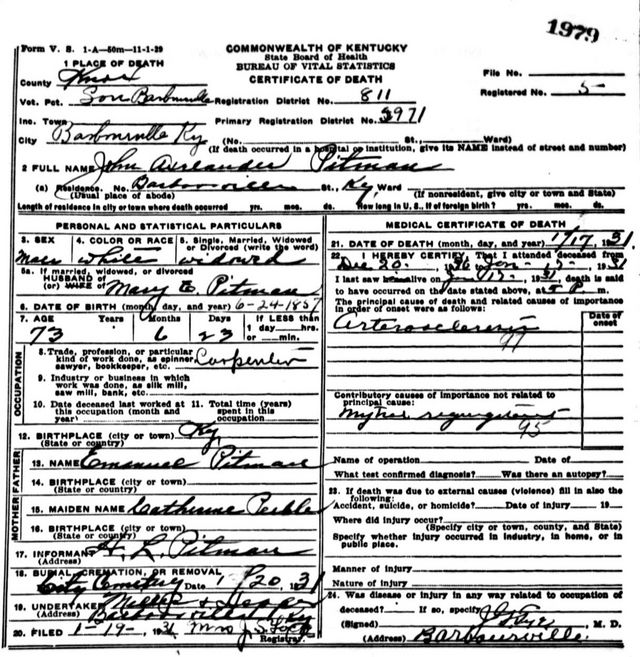 1979
Form V. S. 1-A—50m—11-1-29
COMMONWEALTH OF KENTUCKY
State Board of Health
BUREAU OF VITAL STATISTICS
CERTIFICATE OF DEATH
1 PLACE OF DEATH
County Knox
File No.
Vot. Pct. Barbourville Registration District No. 811
Registered No. 5-
Inc. Town Primary Registration District No. 3971
City Barbourville Ky (No. St., Ward)
(If death occurred in a hospital or institution, give its NAME instead of street and number)
2 FULL NAME John Pitman
(a) Residence. No. Barbourville St., Ky Ward
(Usual place of abode) (If nonresident, give city or town and State)
Length of residence in city or town where death occurred yrs. mos. ds. How long in U. S., if of foreign birth? yrs. mos. ds.
PERSONAL AND STATISTICAL PARTICULARS
3. SEX 4. COLOR OR RACE 5. Single, Married, Widowed or Divorced (write the word)
Male white widowed
5a. If married, widowed, or divorced
HUSBAND of
(or) WIFE of Mary E. Pitman
6. DATE OF BIRTH (month, day, and year) 6-24-1857
7. AGE Years Months Days If LESS than 1 day,....hrs. or....min.
73 6 23
OCCUPATION
8. Trade, profession, or particular kind of work done, as spinner, sawyer, bookkeeper, etc. Carpenter
9. Industry or business in which work was done, as silk mill, saw mill, bank, etc.
10. Date deceased last worked at this occupation (month and year)
11. Total time (years) spent in this occupation
12. BIRTHPLACE (city or town) Ky
(State or country)
FATHER
13. NAME Emanuel Pitman
14. BIRTHPLACE (city or town)
(State or country)
MOTHER
15. MAIDEN NAME Catherine
16. BIRTHPLACE (city or town)
(State or country)
17. INFORMANT H. L. Pitman
(Address)
18. BURIAL, CREMATION, OR REMOVAL
City Cemetery Date 1/20, 1931
19. UNDERTAKER
(Address) Barbourville Ky
20. FILED 1-19-, 1931 Mrs J. S.
Registrar.
MEDICAL CERTIFICATE OF DEATH
21. DATE OF DEATH (month, day, and year) 1/17, 1931
22. I HEREBY CERTIFY, That I attended deceased from
Dec 20, Jan - 17 -, 1931
I last saw h alive on 1931, death is said
to have occurred on the date stated above, at m.
The principal cause of death and related causes of importance in order of onset were as follows:
Date of onset
Arterosclerosis
97
Contributory causes of importance not related to principal cause:
regurgitant
95
Name of operation Date of
What test confirmed diagnosis? Was there an autopsy?
23. If death was due to external causes (violence) fill in also the following:
Accident, suicide, or homicide? Date of injury 19
Where did injury occur?
(Specify city or town, county, and State)
Specify whether injury occurred in industry, in home, or in public place.
Manner of injury
Nature of injury
24. Was disease or injury in any way related to occupation of deceased? If so, specify
(Signed) M. D.
(Address) Barbourville